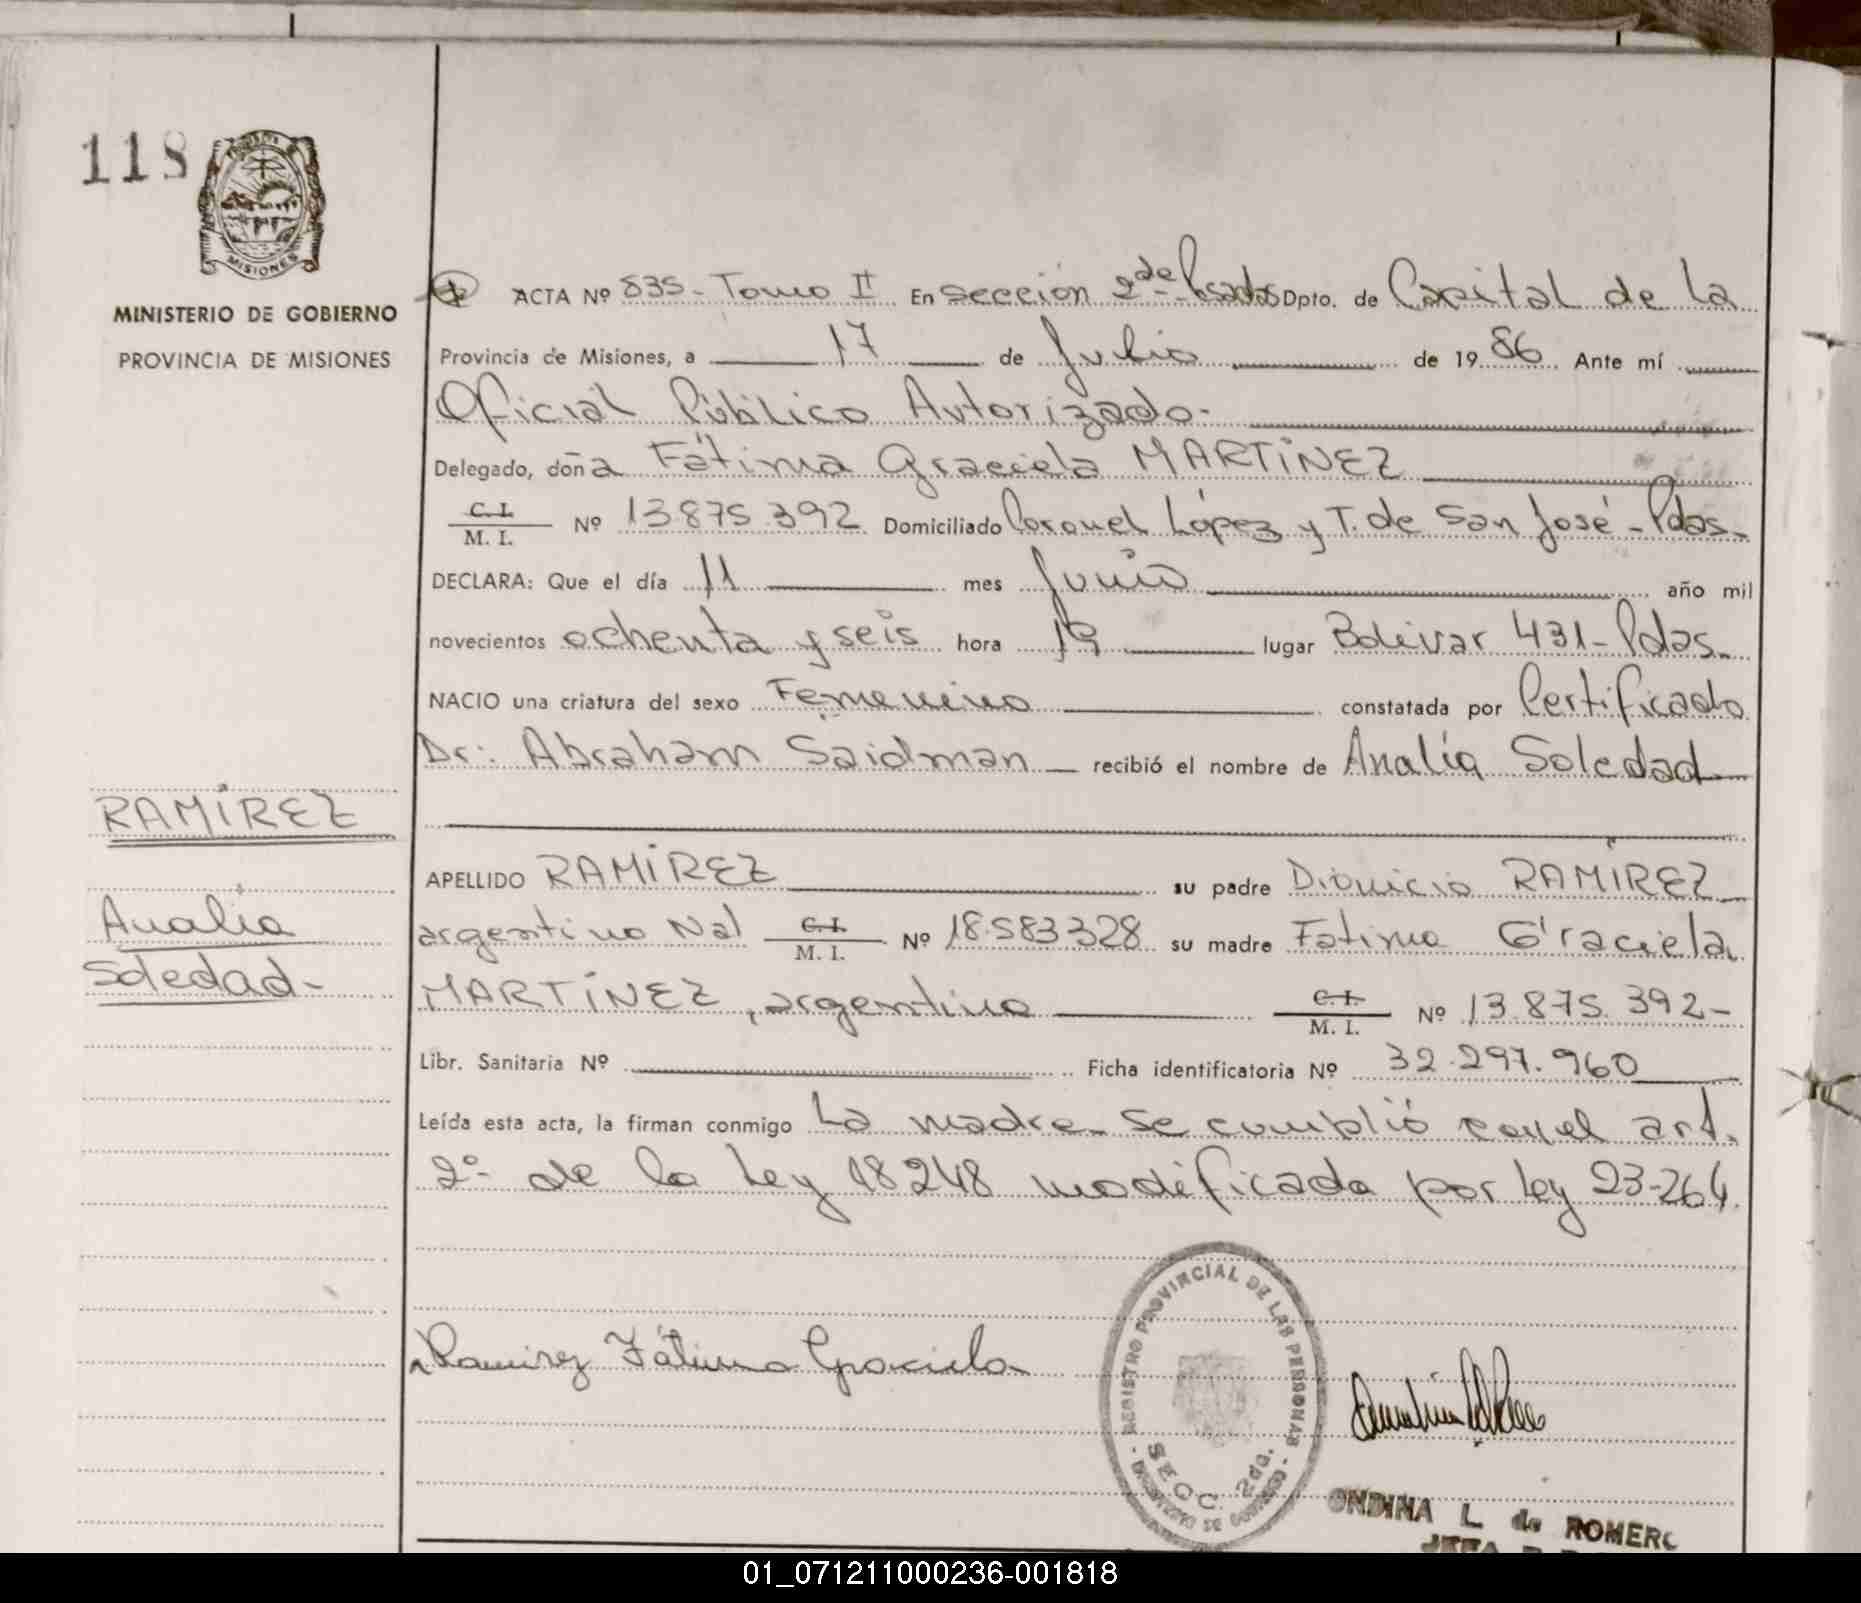 118
MISIONES
MINISTERIO DE GOBIERNO
PROVINCIA DE MISIONES
ACTA Nº 835- Tomo II En sección 2da Posadas Dpto. de Capital de la
Provincia de Misiones, a 17 de Julio de 1986 Ante mí
Oficial Público Autorizado-
Delegado, doña Fátima Graciela MARTÍNEZ
C. I.
M. I. Nº 13875.392 Domiciliado Coronel López y T. de San José - Pdas-
DECLARA: Que el día 11 mes Junio año mil
novecientos ochenta y seis hora 19 lugar Bolívar 431-Pdas.
NACIO una criatura del sexo Femenino constatada por Certificado
Dr: Abraham Saidman recibió el nombre de Analía Soledad
RAMÍREZ
Analía
Soledad-
APELLIDO RAMÍREZ su padre Dionicio RAMÍREZ
argentino Nal C. I.
M. I. Nº 18.583328 su madre Fatima Graciela
MARTÍNEZ, argentina C. I.
M. I. Nº 13.875.392-
Libr. Sanitaria Nº Ficha identificatoria Nº 32.297.960
Leída esta acta, la firman conmigo La madre- se cumplió con el art.
2º de la Ley 18248 modificada por Ley 23-264.
Ramirez Fátima Graciela
REGISTRO PROVINCIAL DE LAS PERSONAS
SECC. 2da.
ONDINA L. de ROMERO
01_071211000236-001818